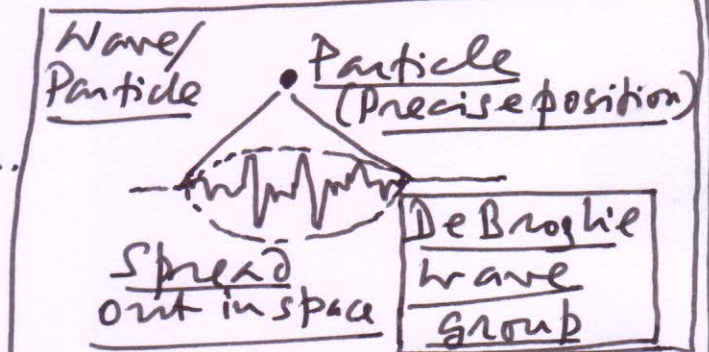 Wave/
Particle
Particle
(Precise position)
Spread
out in space
De Broglie
wave
group